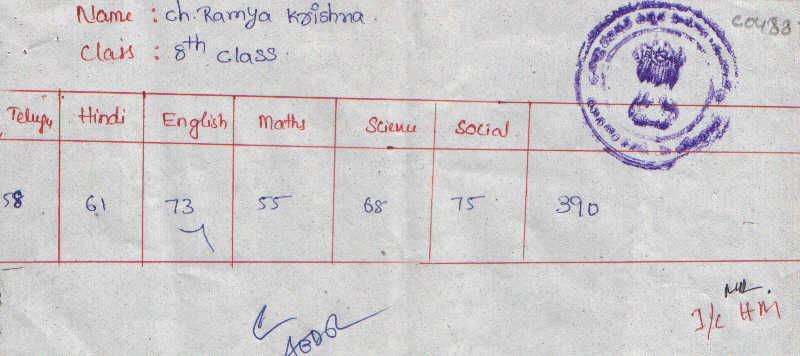 Name : Ch. Ramya Krishna.
Class : 8th Class.
C0488
Telugu Hindi English Maths Science Social
58 61 73 55 68 75 390
I/c HM